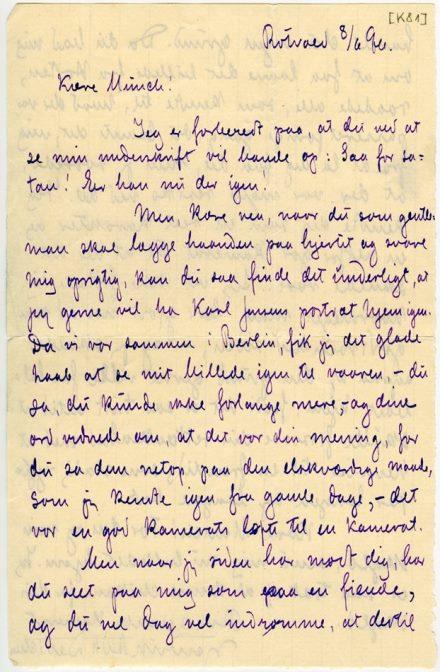 [K81]
Rötved 8/6 90.
Kære Munch!
Jeg er forberedt paa, at du ved at
se min underskrift vil bande op: Saa for sa-
tan! Er han nu der igen!
Men, kære ven, naar du som gentle-
man skal lægge haanden paa hjertet og svare
mig oprigtig, kan du saa finde det underligt, at
jeg gerne vil ha Karl Jensens portræt hjem igen.
Da vi var sammen i Berlin, fik jeg det glade
haab at se mit billede igen til vaaren, – du
sa, du kunde ikke forlange mere, – og dine
ord vidnede om, at det var din mening, for
du sa dem netop paa den elskværdige maade,
som jeg kendte igen fra gamle dage, – det
var en god kamerats løfte til en kamerat.
Men naar jeg siden har mødt dig, har
du seet paa mig som paa en fiende,
og du vil dog vel indrømme, at dertil